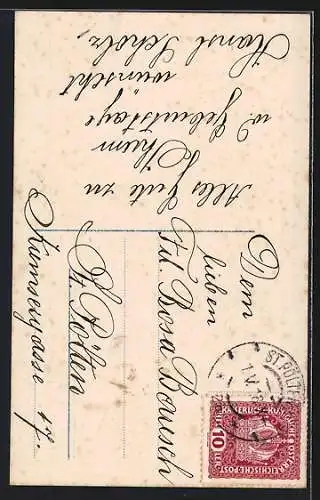 Alles Gute zu
Ihrem
w. Geburtstage
wünscht
Hansl Scholz,
Dem
lieben
Frl. Rosa Bousch
St. Pölten
Kremsergasse 17.
ST. PÖLT
1.V.
KAISERLICHE KÖN
ÖSTERREICHISCHE POST
10